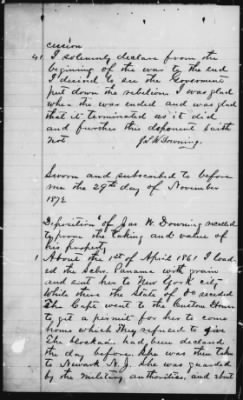 cession
41 I solemnly declare from the
beginning of the war to the end
I desired to see the Government
put down the rebelion I was glad
when the war ended and was glad
that it terminated as it did
and further this deponent saith
not Jas W Downing.
Sworn and subscribed to before
me the 29th day of November
1872
Disposition of Jas W. Downing recalled
upon the taking and value of
his property
1 About the 1st of April 1861 I load
ed the Schr. Paname with grain
and sent her to New York city
While there the State of Va seceded
The Capt went to the Custom House
to get a permit for her to come
home which they refused to give
The blockade had been declared
the day before. She was then take
to Newark N. J. She was guarded
by the military authorities, and